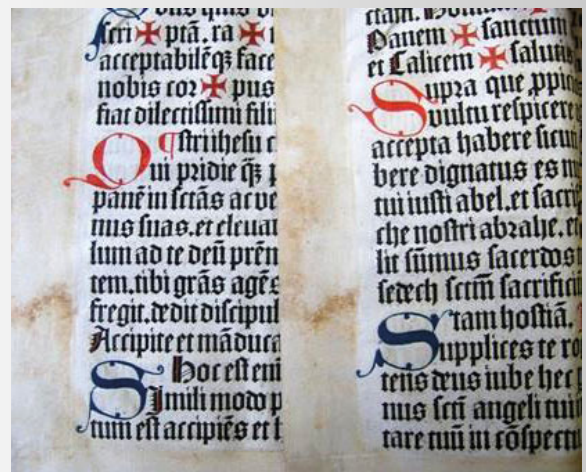 scri✠ptā. ra✠
acceptabilēqꝫ face
nobis cor✠pus
fiat dilectissimi fili
¶stri ihesu c
Qui pridie qꝫ p
panē in sctās ac ve
nus suas. et eleuat
lum ad te deū prēm
tem. tibi grās agēs
fregit. dedit discipul
Accipite et māduca
Hoc est eni
Simili modo p
tum est accipiēs et
Panem ✠ sanctum
et Calicem ✠ salutis
Supra que ꝓpici
vultu respicere
accepta habere sicut
bere dignatus es m
tui iusti abel. et sacri
che nostri abrahe. et
lit sūmus sacerdos
sedech sctm̄ sacrifici
tam hostiā.
Supplices te ro
tens deus iube hec
nus scti angeli tui
tare tuū in cōspect